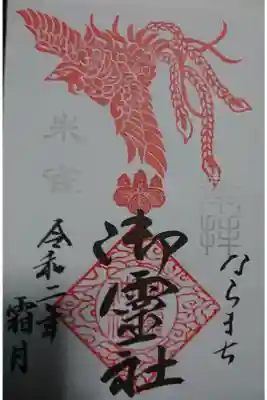 奉拝
ならまち
御靈社
令和二年
霜月